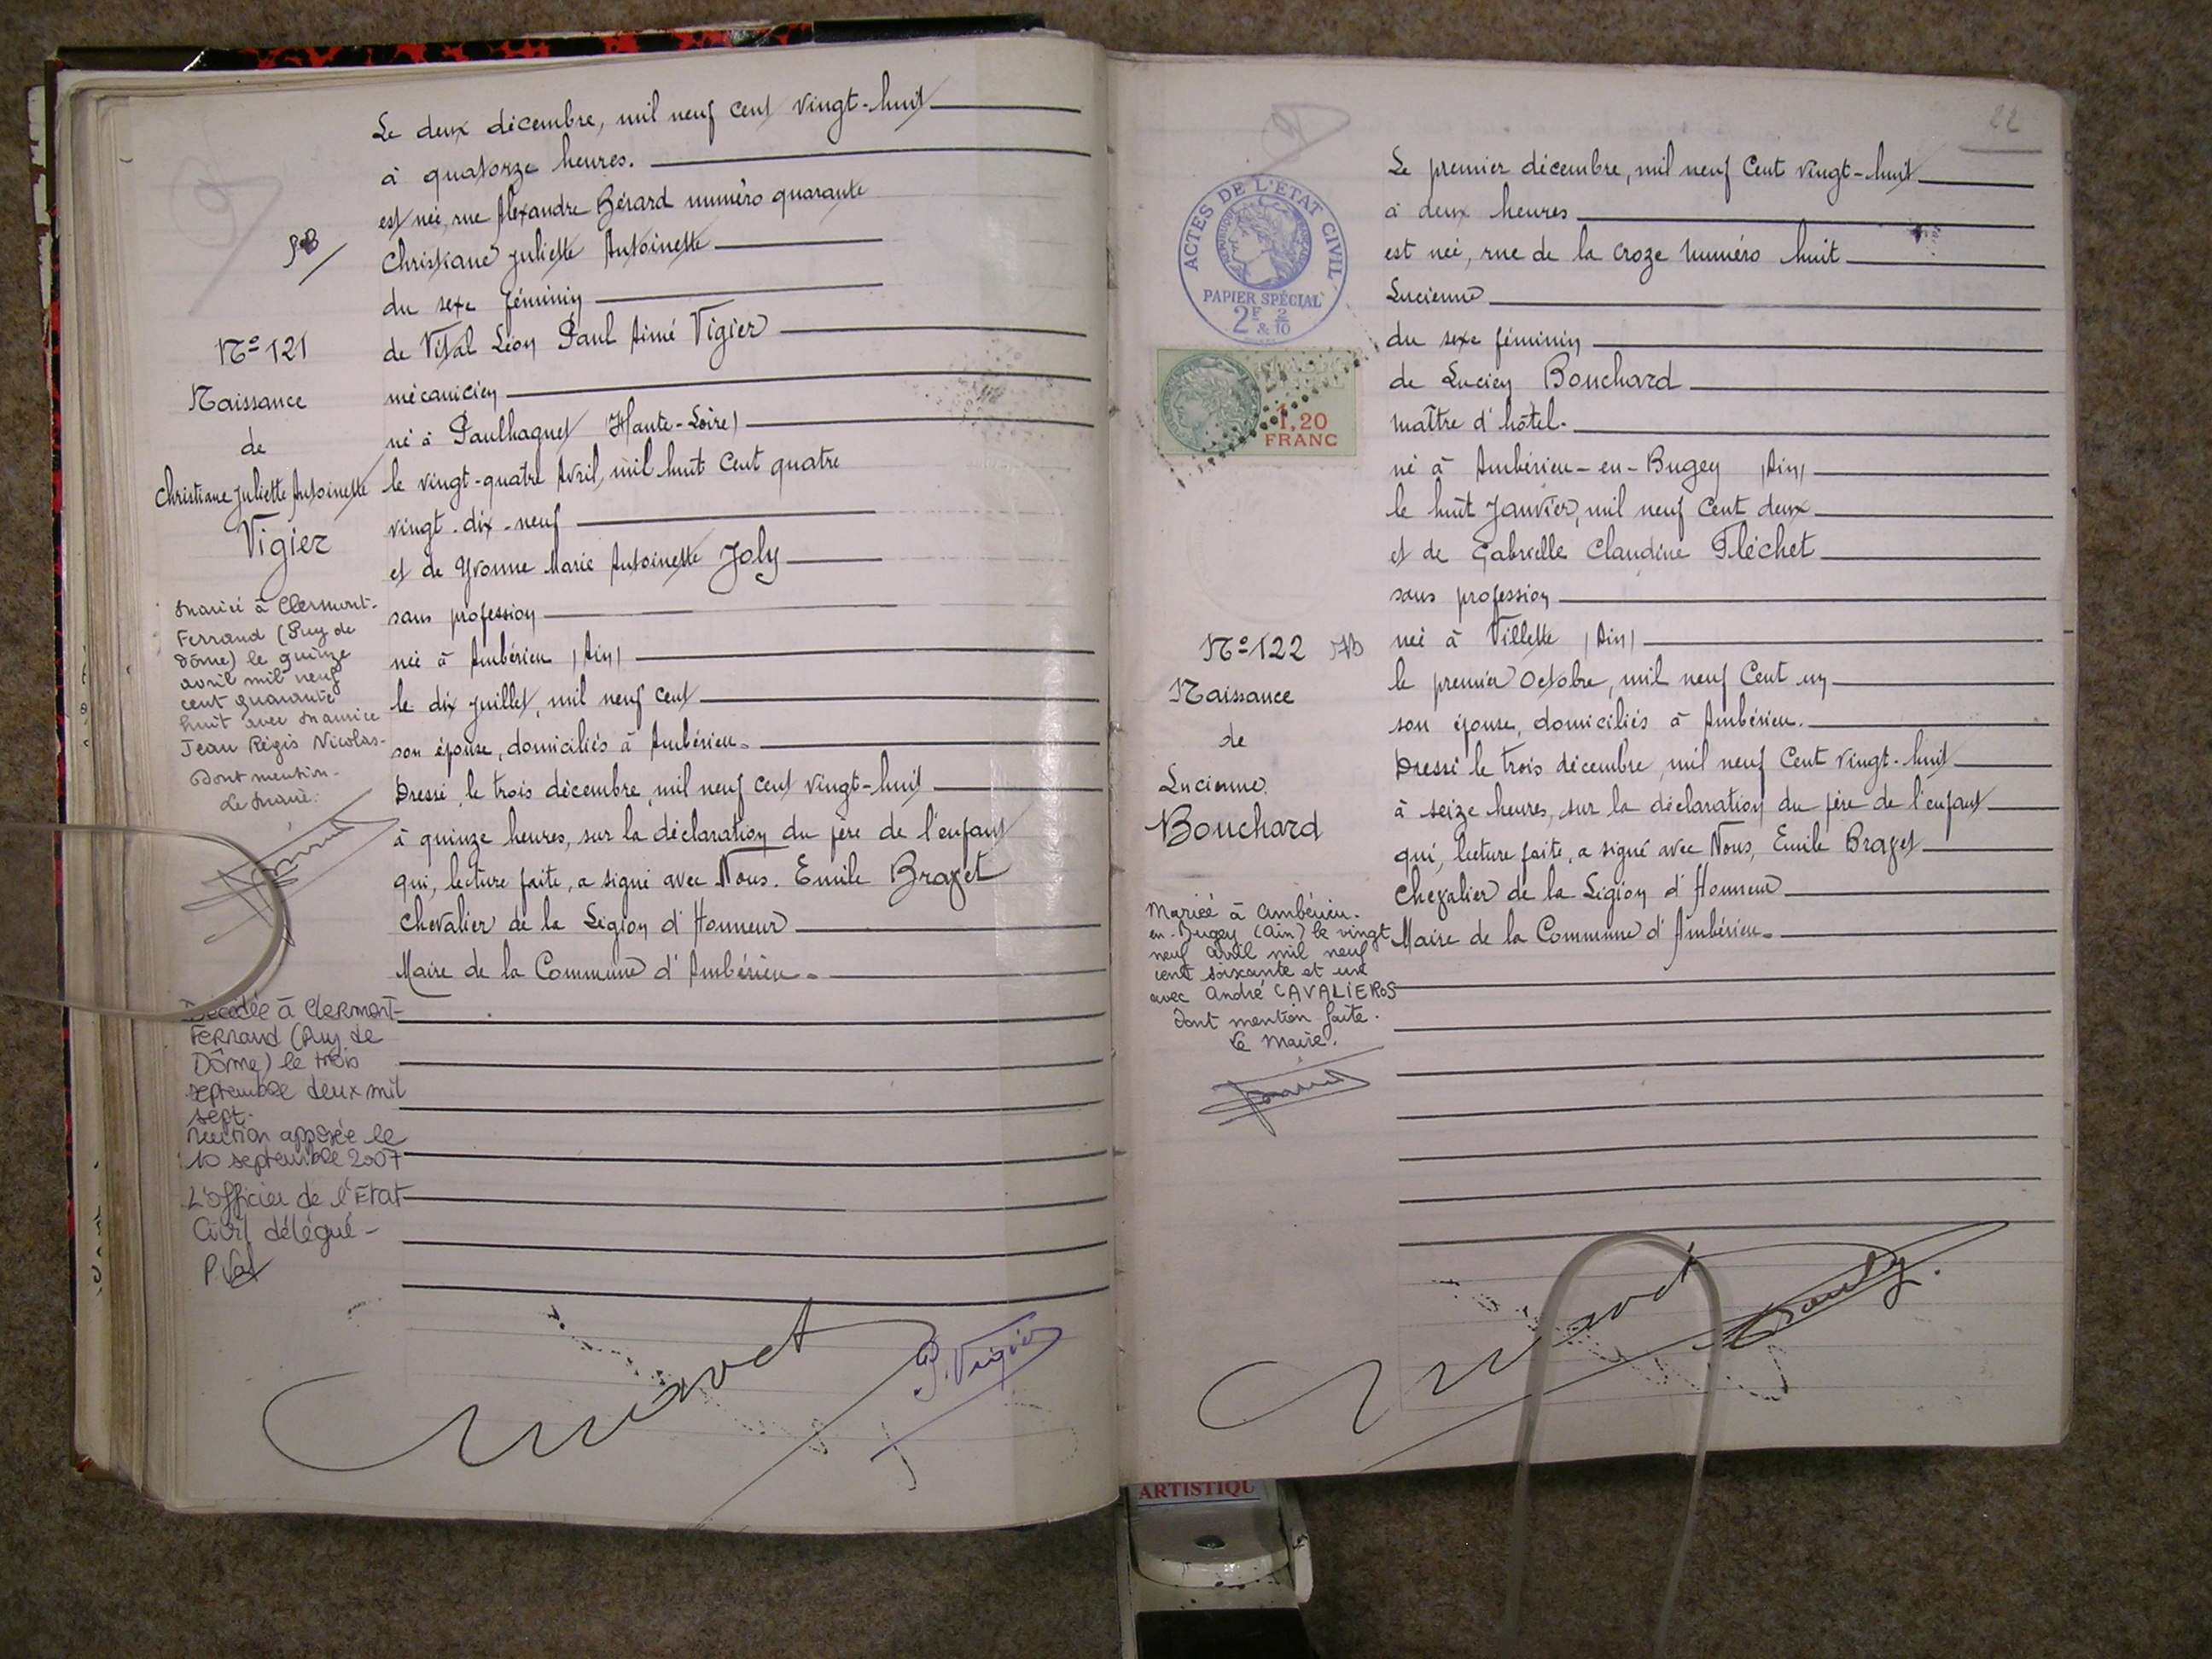 Le deux décembre, mil neuf cent vingt-huit
à quatorze heures.
est née, rue Alexandre Bérard numéro quarante
Christiane Juliette Antoinette
du sexe féminin
de Vital Léon Paul Aimé Vigier
mécanicien
né à Paulhaguet (Haute-Loire)
le vingt-quatre Avril, mil huit cent quatre
vingt-dix-neuf
et de Yvonne Marie Antoinette Joly
sans profession
née à Ambérieu (Ain)
le dix juillet, mil neuf cent
son épouse, domiciliés à Ambérieu.
Dressé, le trois décembre, mil neuf cent vingt-huit
à quinze heures, sur la déclaration du père de l'enfant
qui, lecture faite, a signé avec Nous. Emile Brazet
Chevalier de la Légion d'Honneur
Maire de la Commune d'Ambérieu.
N° 121
Naissance
de
Christiane Juliette Antoinette
Vigier
Marié à Clermont-
Ferrand (Puy de
Dôme) le quinze
avril mil neuf
cent quarante
huit avec Maurice
Jean Régis Nicolas-
Dont mention-
Le Maire:
Décédée à Clermont-
Ferrand (Puy de
Dôme) le trois
septembre deux mil
sept.
Mention apposée le
10 septembre 2007
L'officier de l'Etat
Civil délégué-
P. Vigier
22
ACTES DE L'ETAT CIVIL
PAPIER SPÉCIAL
2F & 2/10
1,20
FRANC
Le premier décembre, mil neuf Cent vingt-huit
à deux heures
est née, rue de la Croze numéro huit
Lucienne
du sexe féminin
de Lucien Bouchard
maître d'hôtel.
né à Ambérieu-en-Bugey (Ain)
le huit Janvier, mil neuf Cent deux
et de Gabrielle Claudine Fléchet
sans profession
née à Villette (Ain)
le premier Octobre, mil neuf Cent un
son épouse, domiciliés à Ambérieu.
Dressé le trois décembre, mil neuf Cent vingt-huit
à seize heures, sur la déclaration du père de l'enfant
qui, lecture faite, a signé avec Nous, Emile Brazet
Chevalier de la Légion d'Honneur
Maire de la Commune d'Ambérieu.
N° 122
Naissance
de
Lucienne
Bouchard
Mariée à Ambérieu-
en-Bugey (Ain) le vingt
neuf avril mil neuf
cent soixante et un
avec André CAVALIEROS
dont mention faite.
Le Maire.
ARTISTIQU